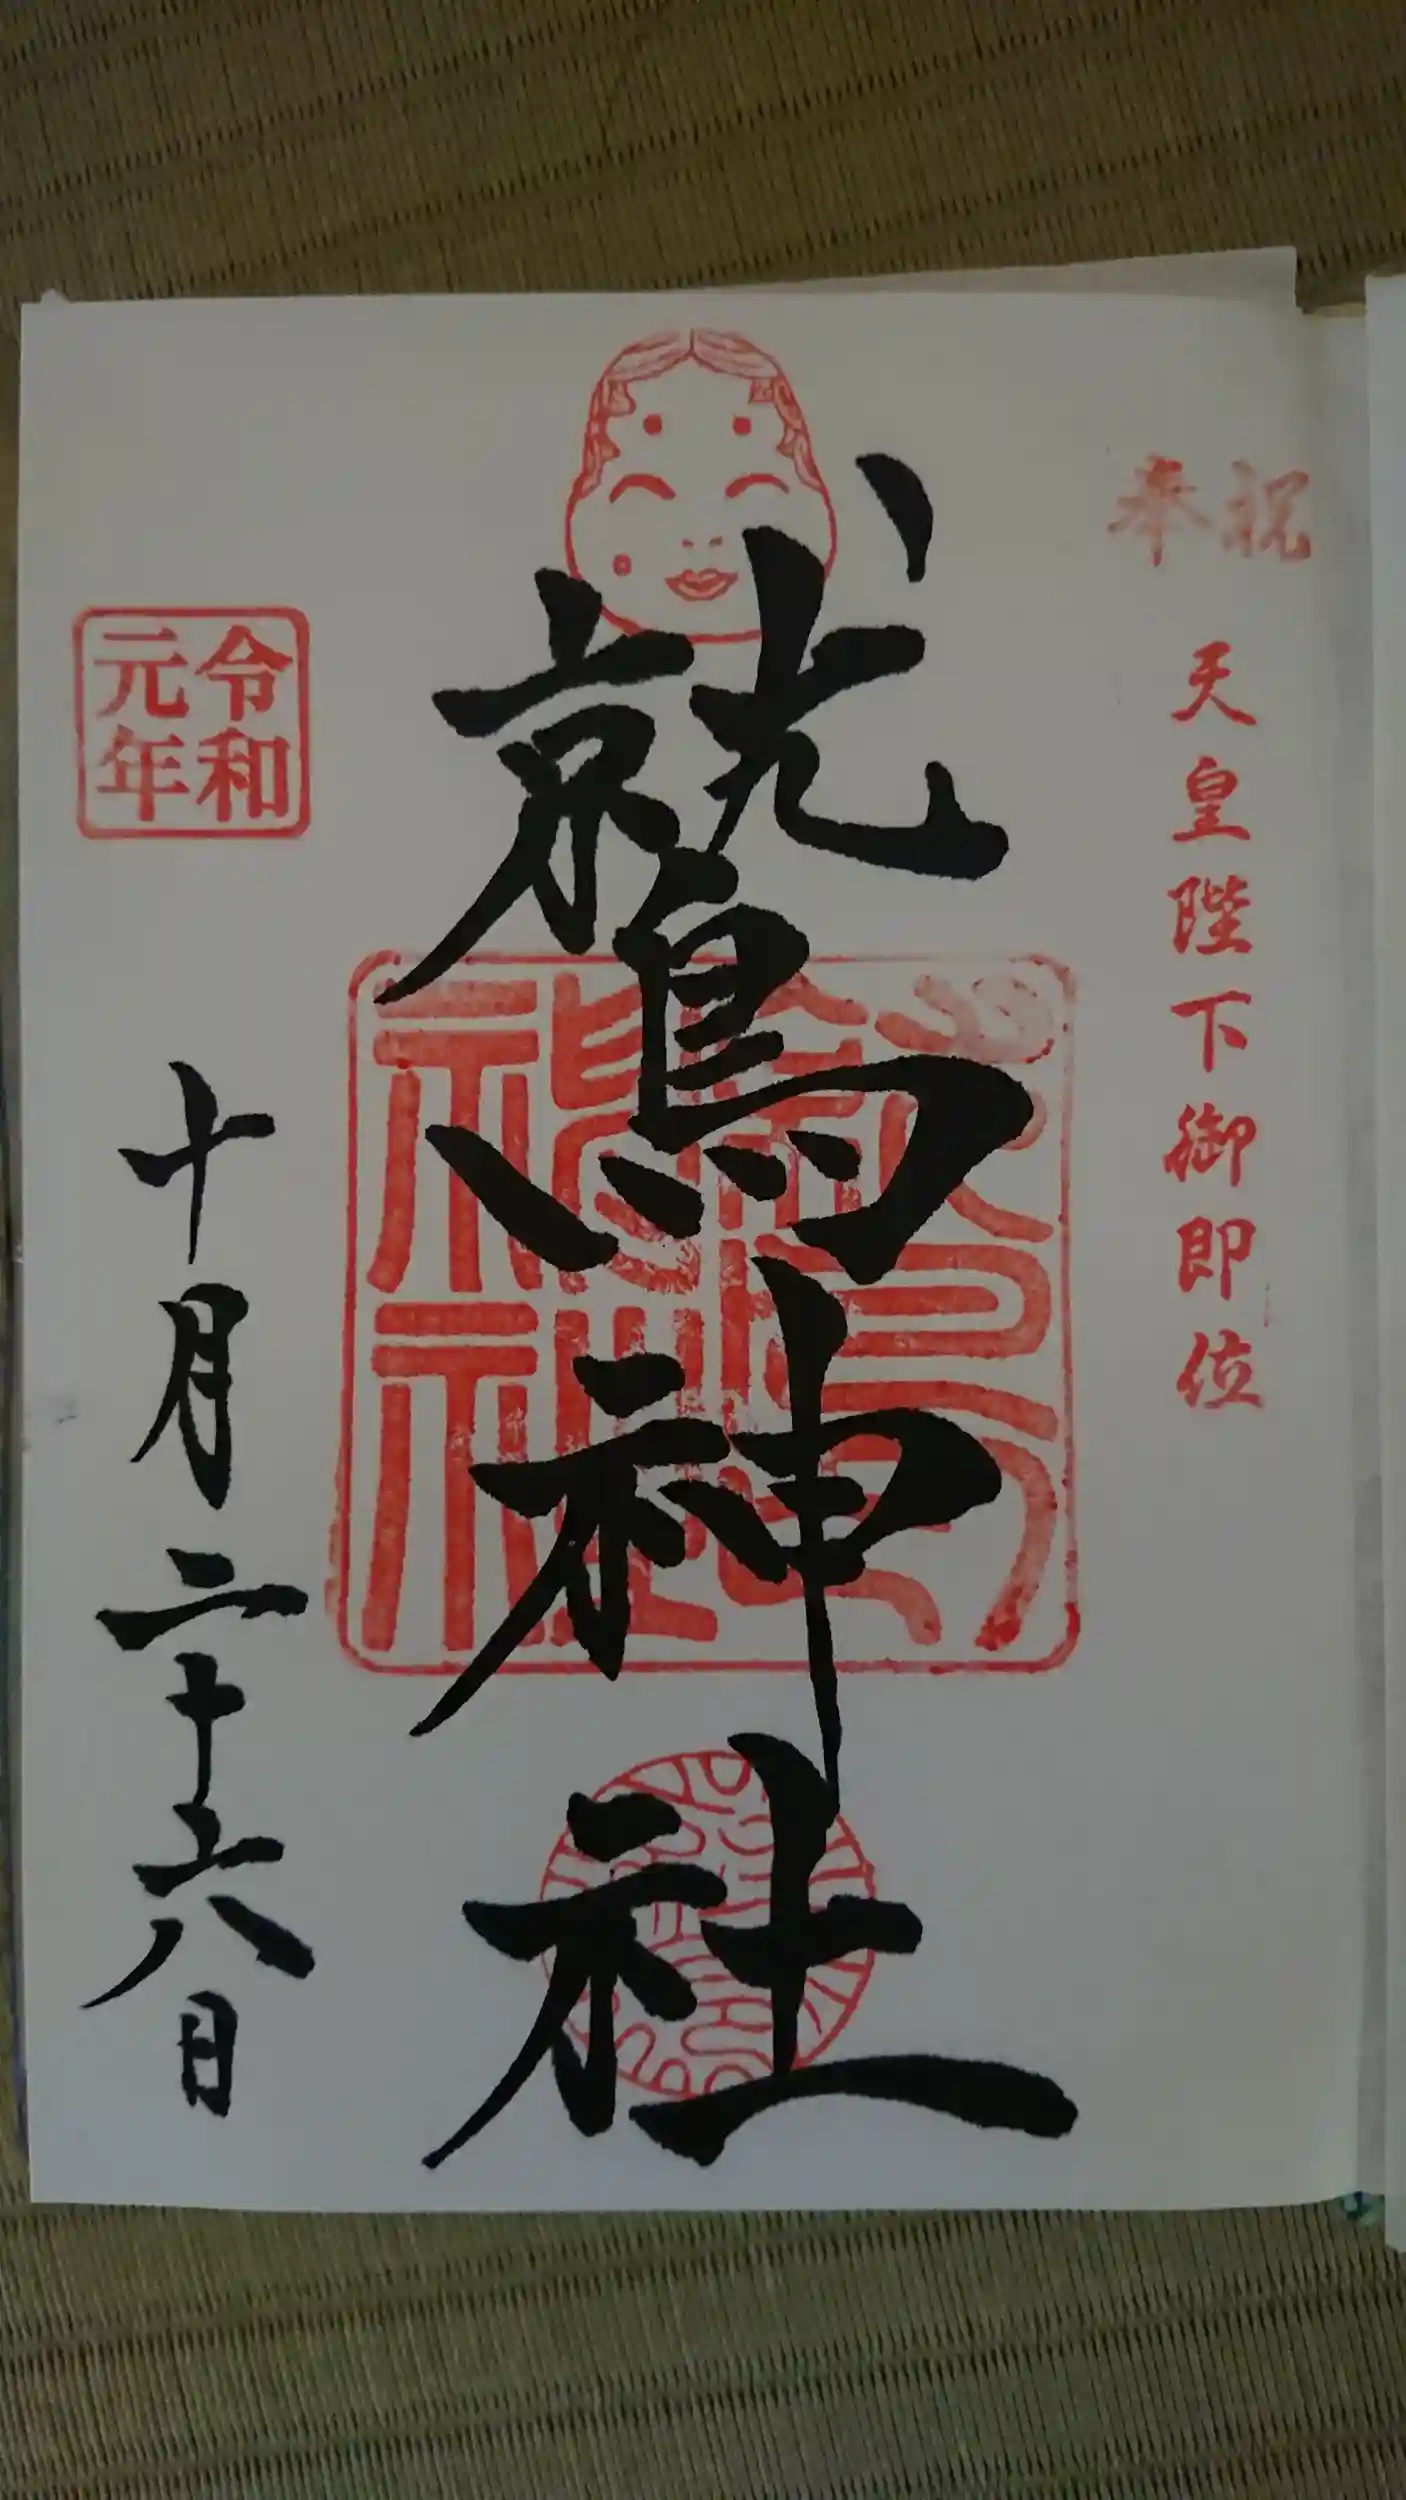 奉祝
天皇陛下御即位
鷲神社
鷲神社
令和
元年
十月二十六日